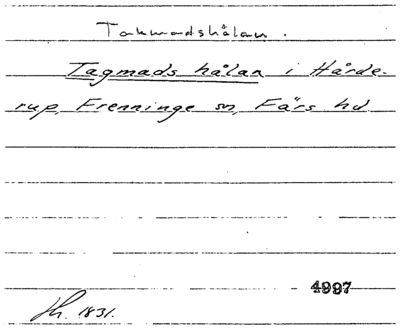 Takmadshålan.
Tagmads hålan i Hårde-
rup, Frenninge sn, Färs hd.
4997
1831.